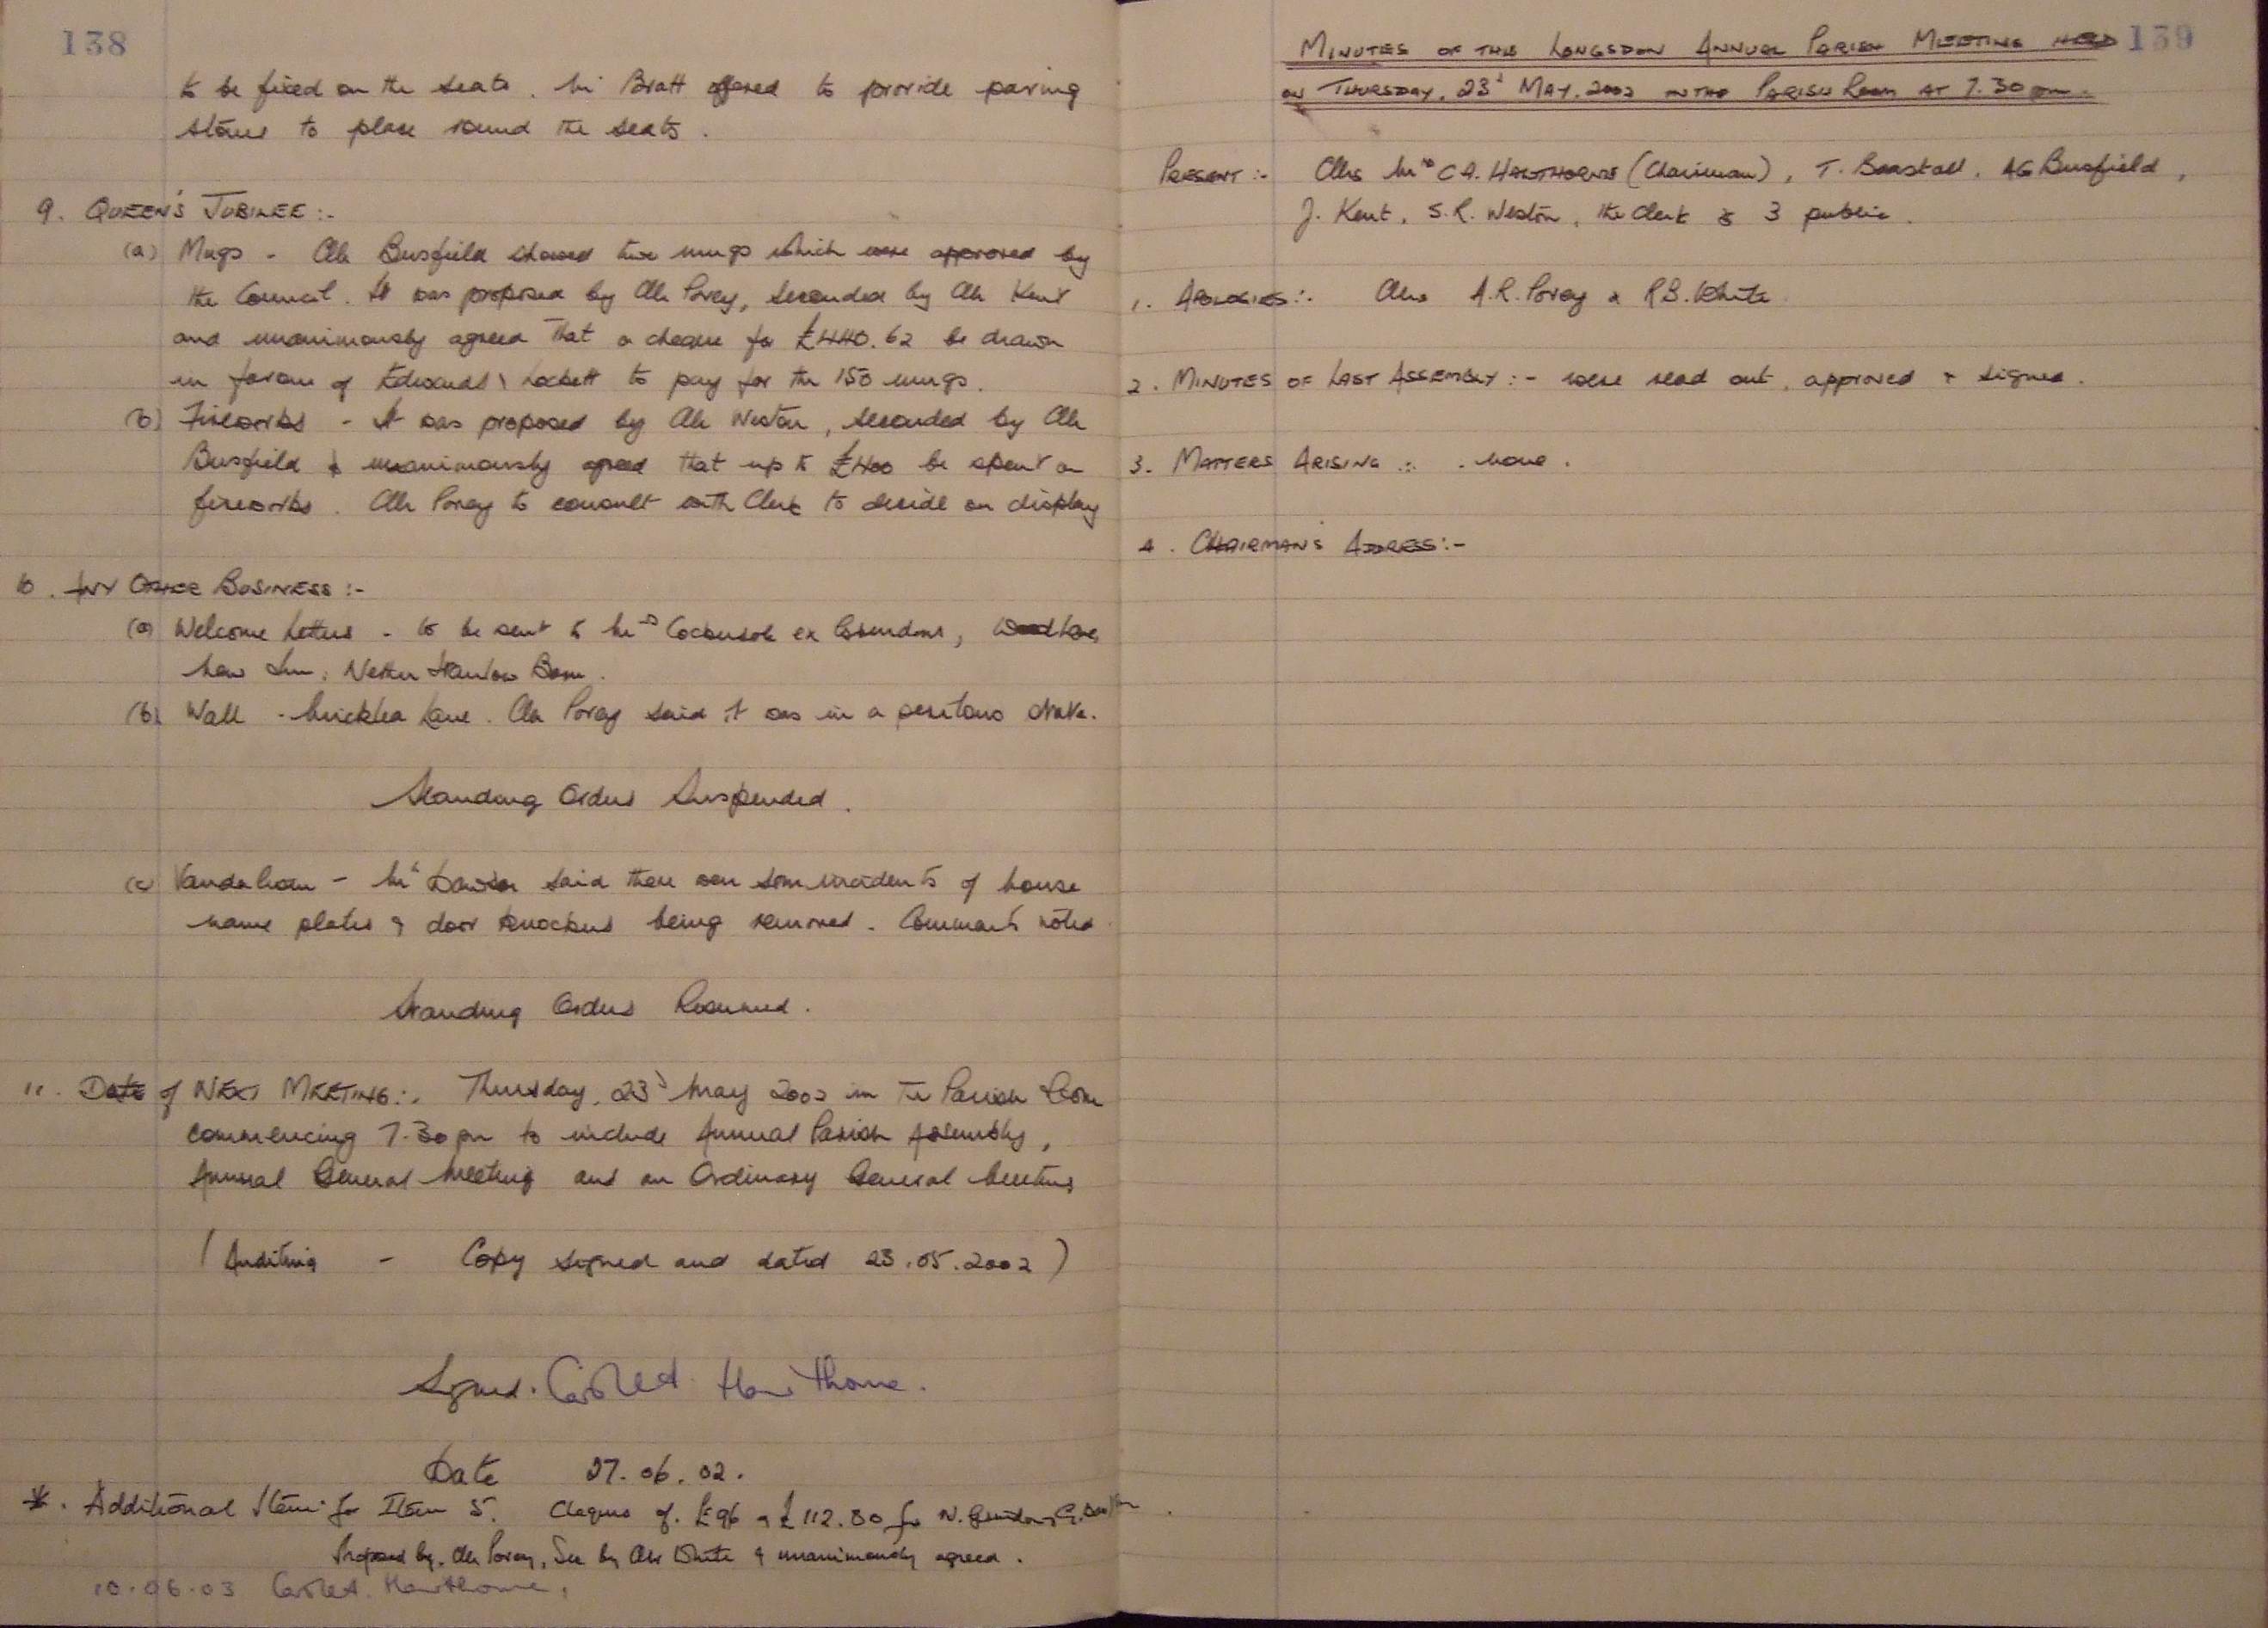 138
to be fixed on the seats. Mr Bratt offered to provide paving
stones to place round the seats.
9. QUEEN'S JUBILEE:-
(a) Mugs - Cllr Busfield showed two mugs which were approved by
the Council. It was proposed by Cllr Povey, seconded by Cllr Kent
and unanimously agreed that a cheque for £440.62 be drawn
in favour of Edwards & Lockett to pay for the 150 mugs.
(b) Fireworks - It was proposed by Cllr Weston, seconded by Cllr
Busfield & unanimously agreed that up to £400 be spent on
fireworks. Cllr Povey to consult with Clerk to decide on display
10. ANY OTHER BUSINESS:-
(a) Welcome Letters - to be sent to ex
New Inn, Barn.
(b) Wall - Lane. Cllr Povey said it was in a state.
Standing Orders Suspended.
(c) Vandalism - Mr Dawson said there were some incidents of house
name plates & door knockers being removed. Comments noted
Standing Orders Resumed.
11. Date of NEXT MEETING:- Thursday, 23d May 2002 in the Parish Room
commencing 7.30pm to include Annual Parish Assembly,
Annual General Meeting and an Ordinary General Meeting
( - Copy signed and dated 23.05.2002)
Signed. Carole A. Hawthorne.
Date 27.06.02.
*. Additional Item for Item 5. Cheques of £96 & £112.80 for N.
Proposed by Cllr Povey, Sec by Cllr White & unanimously agreed.
10.06.03 Carole A. Hawthorne.
139
MINUTES OF THE LONGSDON ANNUAL PARISH MEETING HELD
ON THURSDAY, 23d MAY, 2002 IN THE PARISH ROOM AT 7.30pm.
PRESENT:- Cllrs Mrs C A. HAWTHORNE (Chairman), T. AG Busfield,
J. Kent, S.R. Weston, the Clerk & 3 public.
1. APOLOGIES:- Cllrs A.R. Povey & R.B. White.
2. MINUTES OF LAST ASSEMBLY:- were read out, approved & signed.
3. MATTERS ARISING:- none.
4. CHAIRMAN'S ADDRESS:-